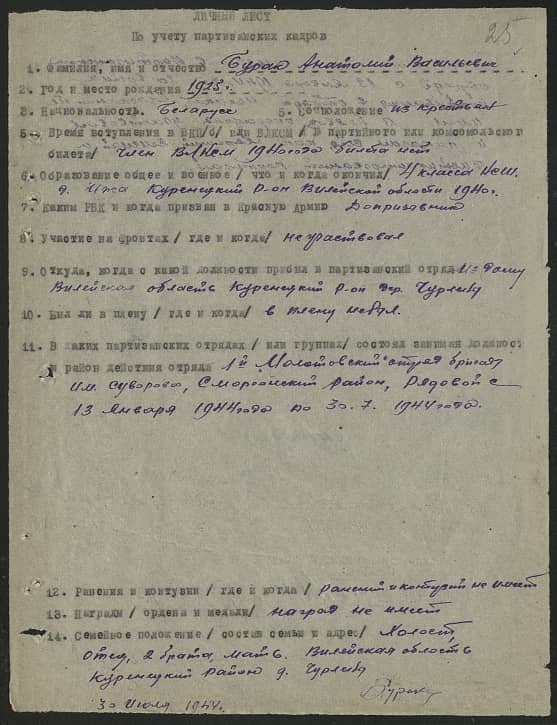 ЛИЧНЫЙ ЛИСТ
25
По учету партизанских кадров
1. Фамилия, имя и отчество Бурак Анатолий Васильевич
2. Год и место рождения 1925 г.
3. Национальность. Беларусс 5. Соцположение из крестьян
5. Время вступления в ВКП/б/ или ВЛКСМ / № партийного или комсомольского
билета/ Член ВЛКСМ 1940 года билета нет
6. Образование общее и военное / что и когда окончил/ 4 класса
д. Ижа Куренецкий р-он Вилейской области 1940 г.
7. Каким РВК и когда призван в Красную Армию Допризывник
8. Участие на фронтах / где и когда/ не участвовал
9. Откуда, когда с какой должности прибыл в партизанский отряд из дому
Вилейская область Куренецкий р-он дер.
10. Был ли в плену / где и когда/ в плену не был.
11. В каких партизанских отрядах / или группах/ состоял занимая должност
и район действия отряда 1й Молотовский отряд бригад
им. Суворова, Сморгонский район, Рядовой с
13 января 1944 года по 30.7.1944 года.
12. Ранения и контузии / где и когда / ранений и контузий не имеет
13. Награды / ордена и медали/ наград не имеет
14. Семейное положение / состав семьи и адрес/ Холост,
отец, 2 брата, мать. Вилейская область
Куренецкий район д.
30 июля 1944.